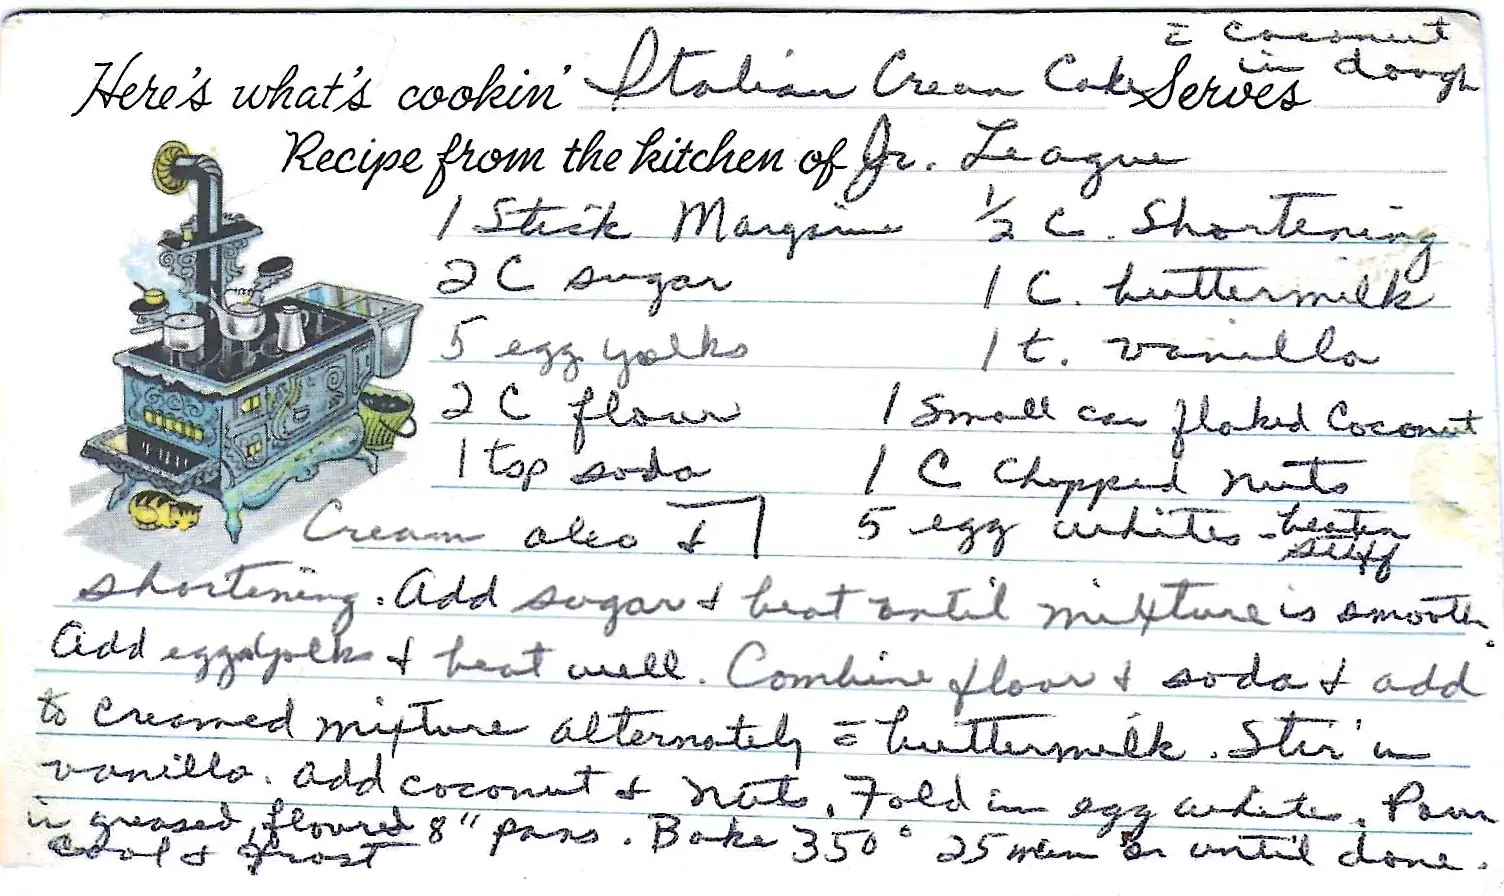 = coconut
Here's what's cookin' Italian Cream Cake Serves in dough
Recipe from the kitchen of Jr. League
1 Stick Margarine ½ C. Shortening
2 C sugar 1 C. buttermilk
5 egg yolks 1 t. vanilla
2 C flour 1 Small can flaked Coconut
1 tsp soda 1 C Chopped nuts
Cream oleo & 5 egg whites - beaten stiff
shortening. Add sugar & beat until mixture is smooth.
Add egg yolks & beat well. Combine flour & soda & add
to creamed mixture alternately = buttermilk. Stir in
vanilla. Add coconut & nuts. Fold in egg whites. Pour
in greased, floured 8" pans. Bake 350° 25 min or until done.
Cool & frost